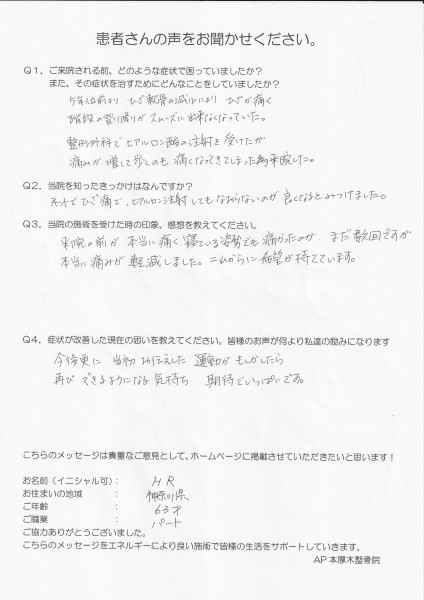 患者さんの声をお聞かせください。
Q1．ご来院される前、どのような症状で困っていましたか？
また、その症状を治すためにどんなことをしていましたか？
5年位前より ひざ軟骨の減少により ひざが痛く
階段の登り降りがスムーズに出来なくなっていた。
整形外科でヒアルロン酸の注射を受けたが
痛みが増して歩くのも痛くなってきてしまった為来院した。
Q2．当院を知ったきっかけはなんですか？
ネットでひざ痛で、ヒアルロン注射してもなおらないのが良くなるとみつけました。
Q3．当院の施術を受けた時の印象、感想を教えてください。
来院の前が 本当に痛く寝ている姿勢でも痛かったのが まだ数回ですが
本当に痛みが軽減しました。これからに希望が持てています。
Q4．症状が改善した現在の思いを教えてください。皆様のお声が何より私達の励みになります
今後更に 当初お伝えした 運動が もしかしたら
再び できるようになる気持ち 期待でいっぱいです。
こちらのメッセージは貴重なご意見として、ホームページに掲載させていただきたいと思います！
お名前（イニシャル可）： HR
お住まいの地域 ： 神奈川県
ご年齢 ： 63才
ご職業 ： パート
ご協力ありがとうございました。
こちらのメッセージをエネルギーにより良い施術で皆様の生活をサポートしていきます。
AP 本厚木整骨院